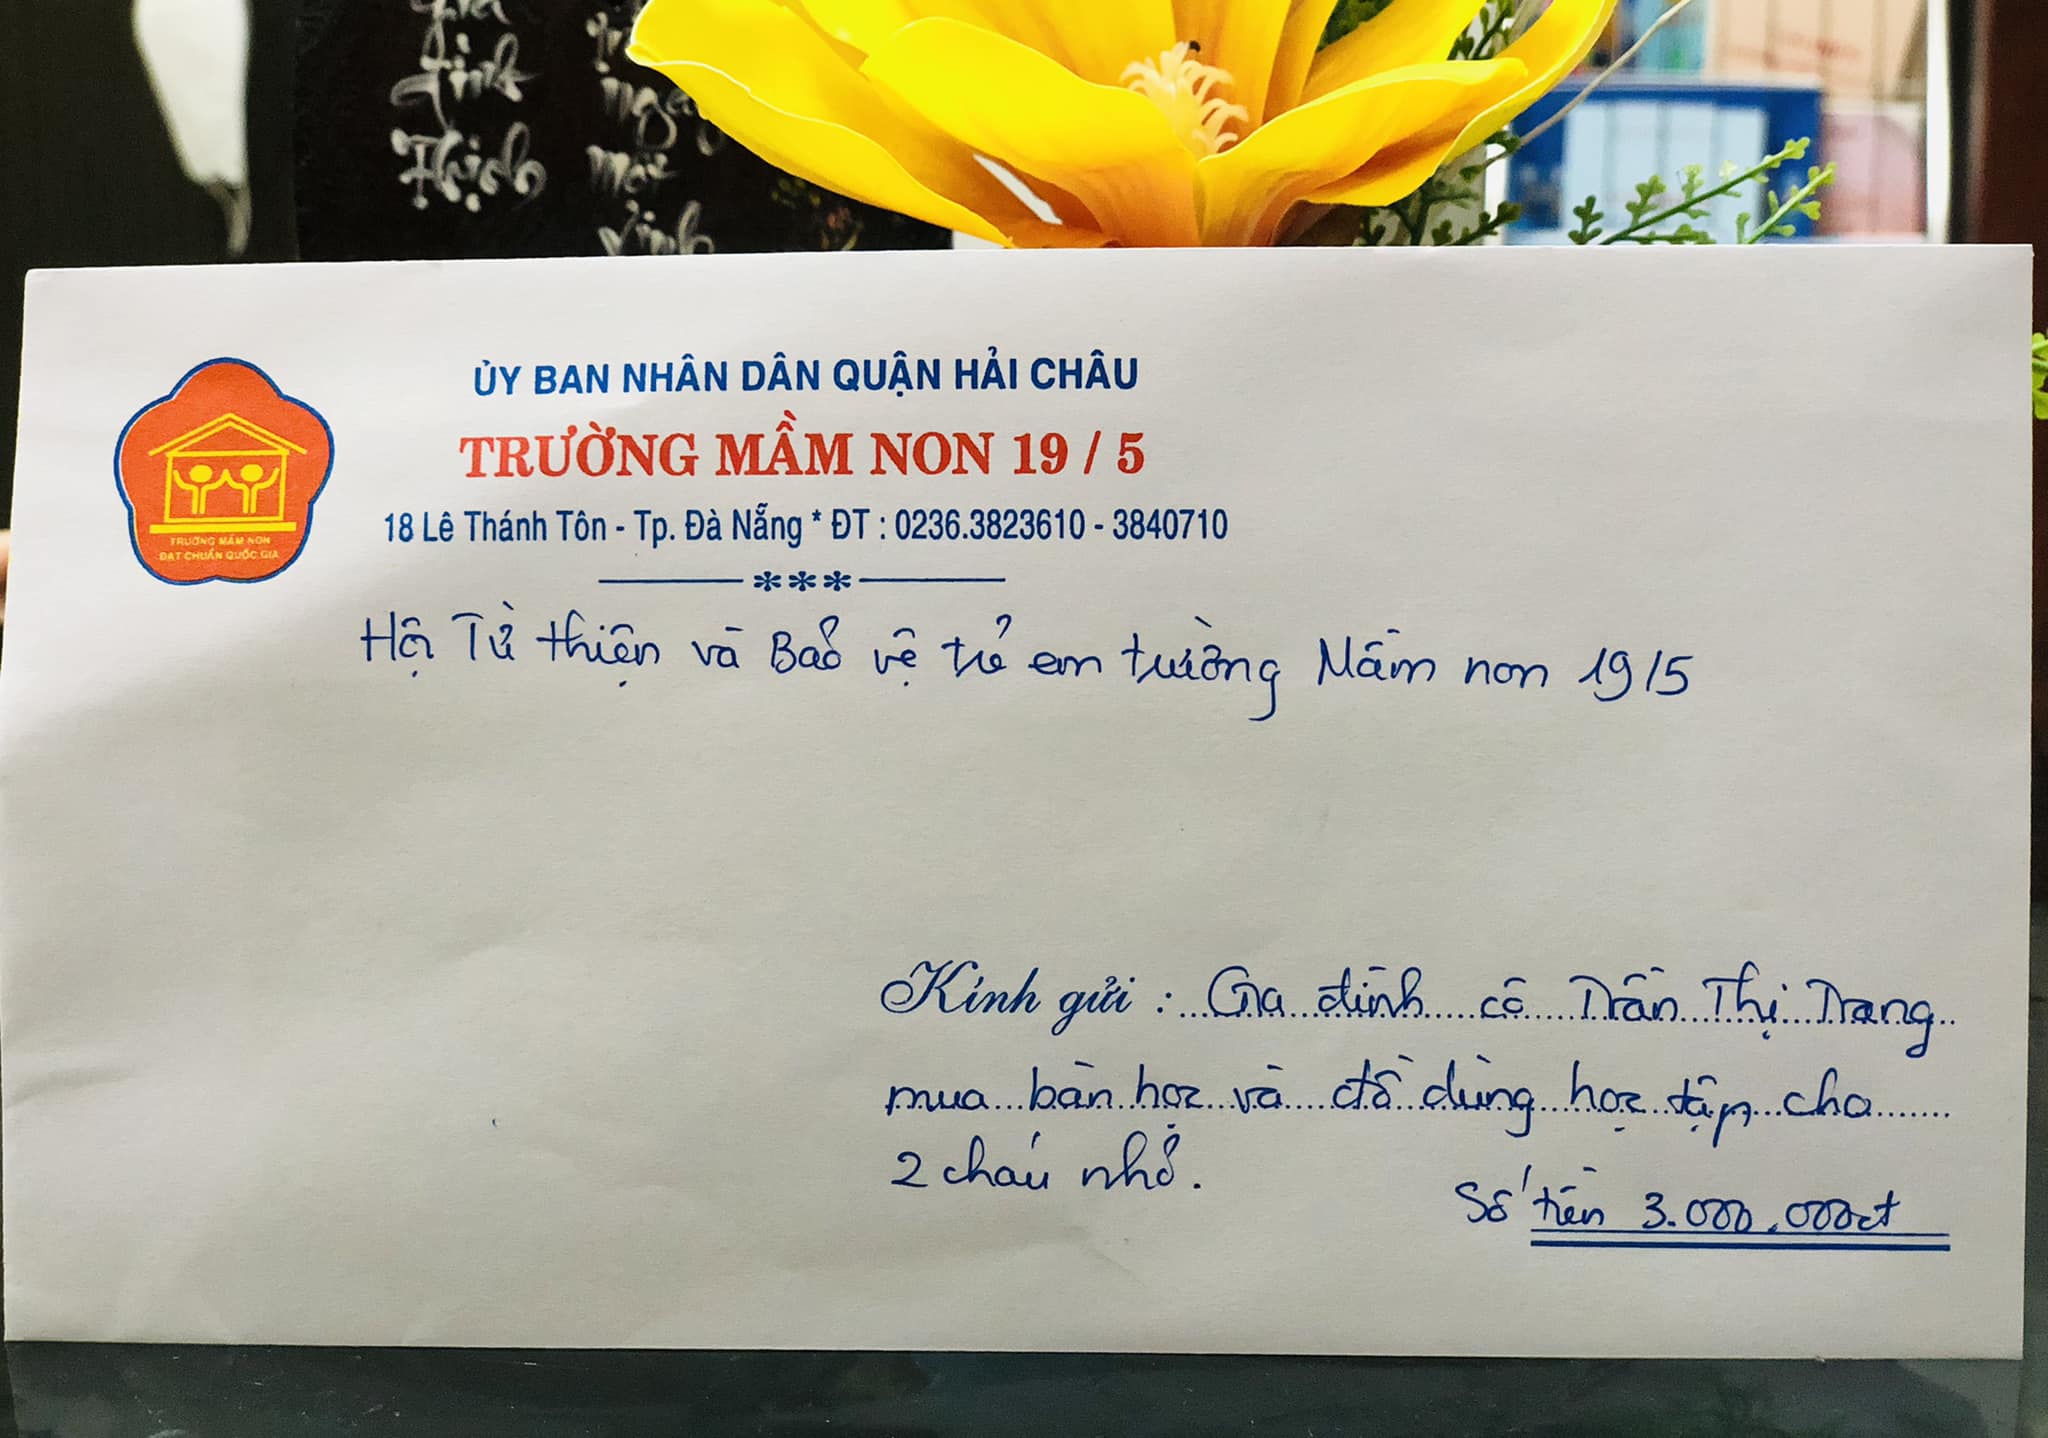 Gia
tinh
thịnh
mới
vinh
ỦY BAN NHÂN DÂN QUẬN HẢI CHÂU
TRƯỜNG MẦM NON 19 / 5
18 Lê Thánh Tôn - Tp. Đà Nẵng * ĐT : 0236.3823610 - 3840710
***
TRƯỜNG MẦM NON
ĐẠT CHUẨN QUỐC GIA
Hội Từ thiện và Bảo vệ trẻ em trường Mầm non 19/5
Kính gửi : Gia đình cô Trần Thị Trang
mua bàn học và đồ dùng học tập cho
2 cháu nhỏ.
Số tiền 3.000.000đ